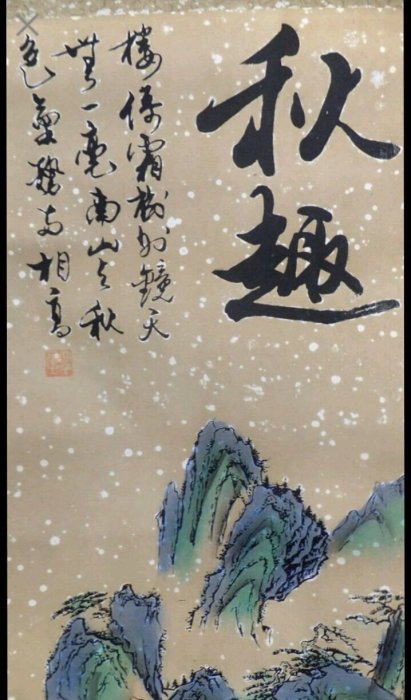 秋趣
樓倚霜樹外鏡天
無一毫南山与秋
色氣勢両相高